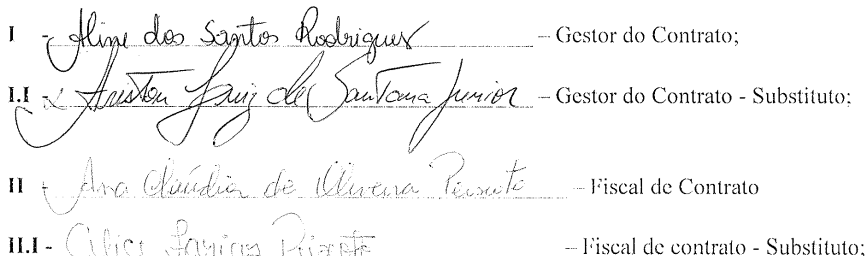 I - Aline dos Santos Rodrigues – Gestor do Contrato;
I.I - Ariston Luiz de Santana Junior – Gestor do Contrato - Substituto;
II - Ana Cláudia de Oliveira – Fiscal de Contrato
II.I - Farias Peixoto – Fiscal de contrato - Substituto;